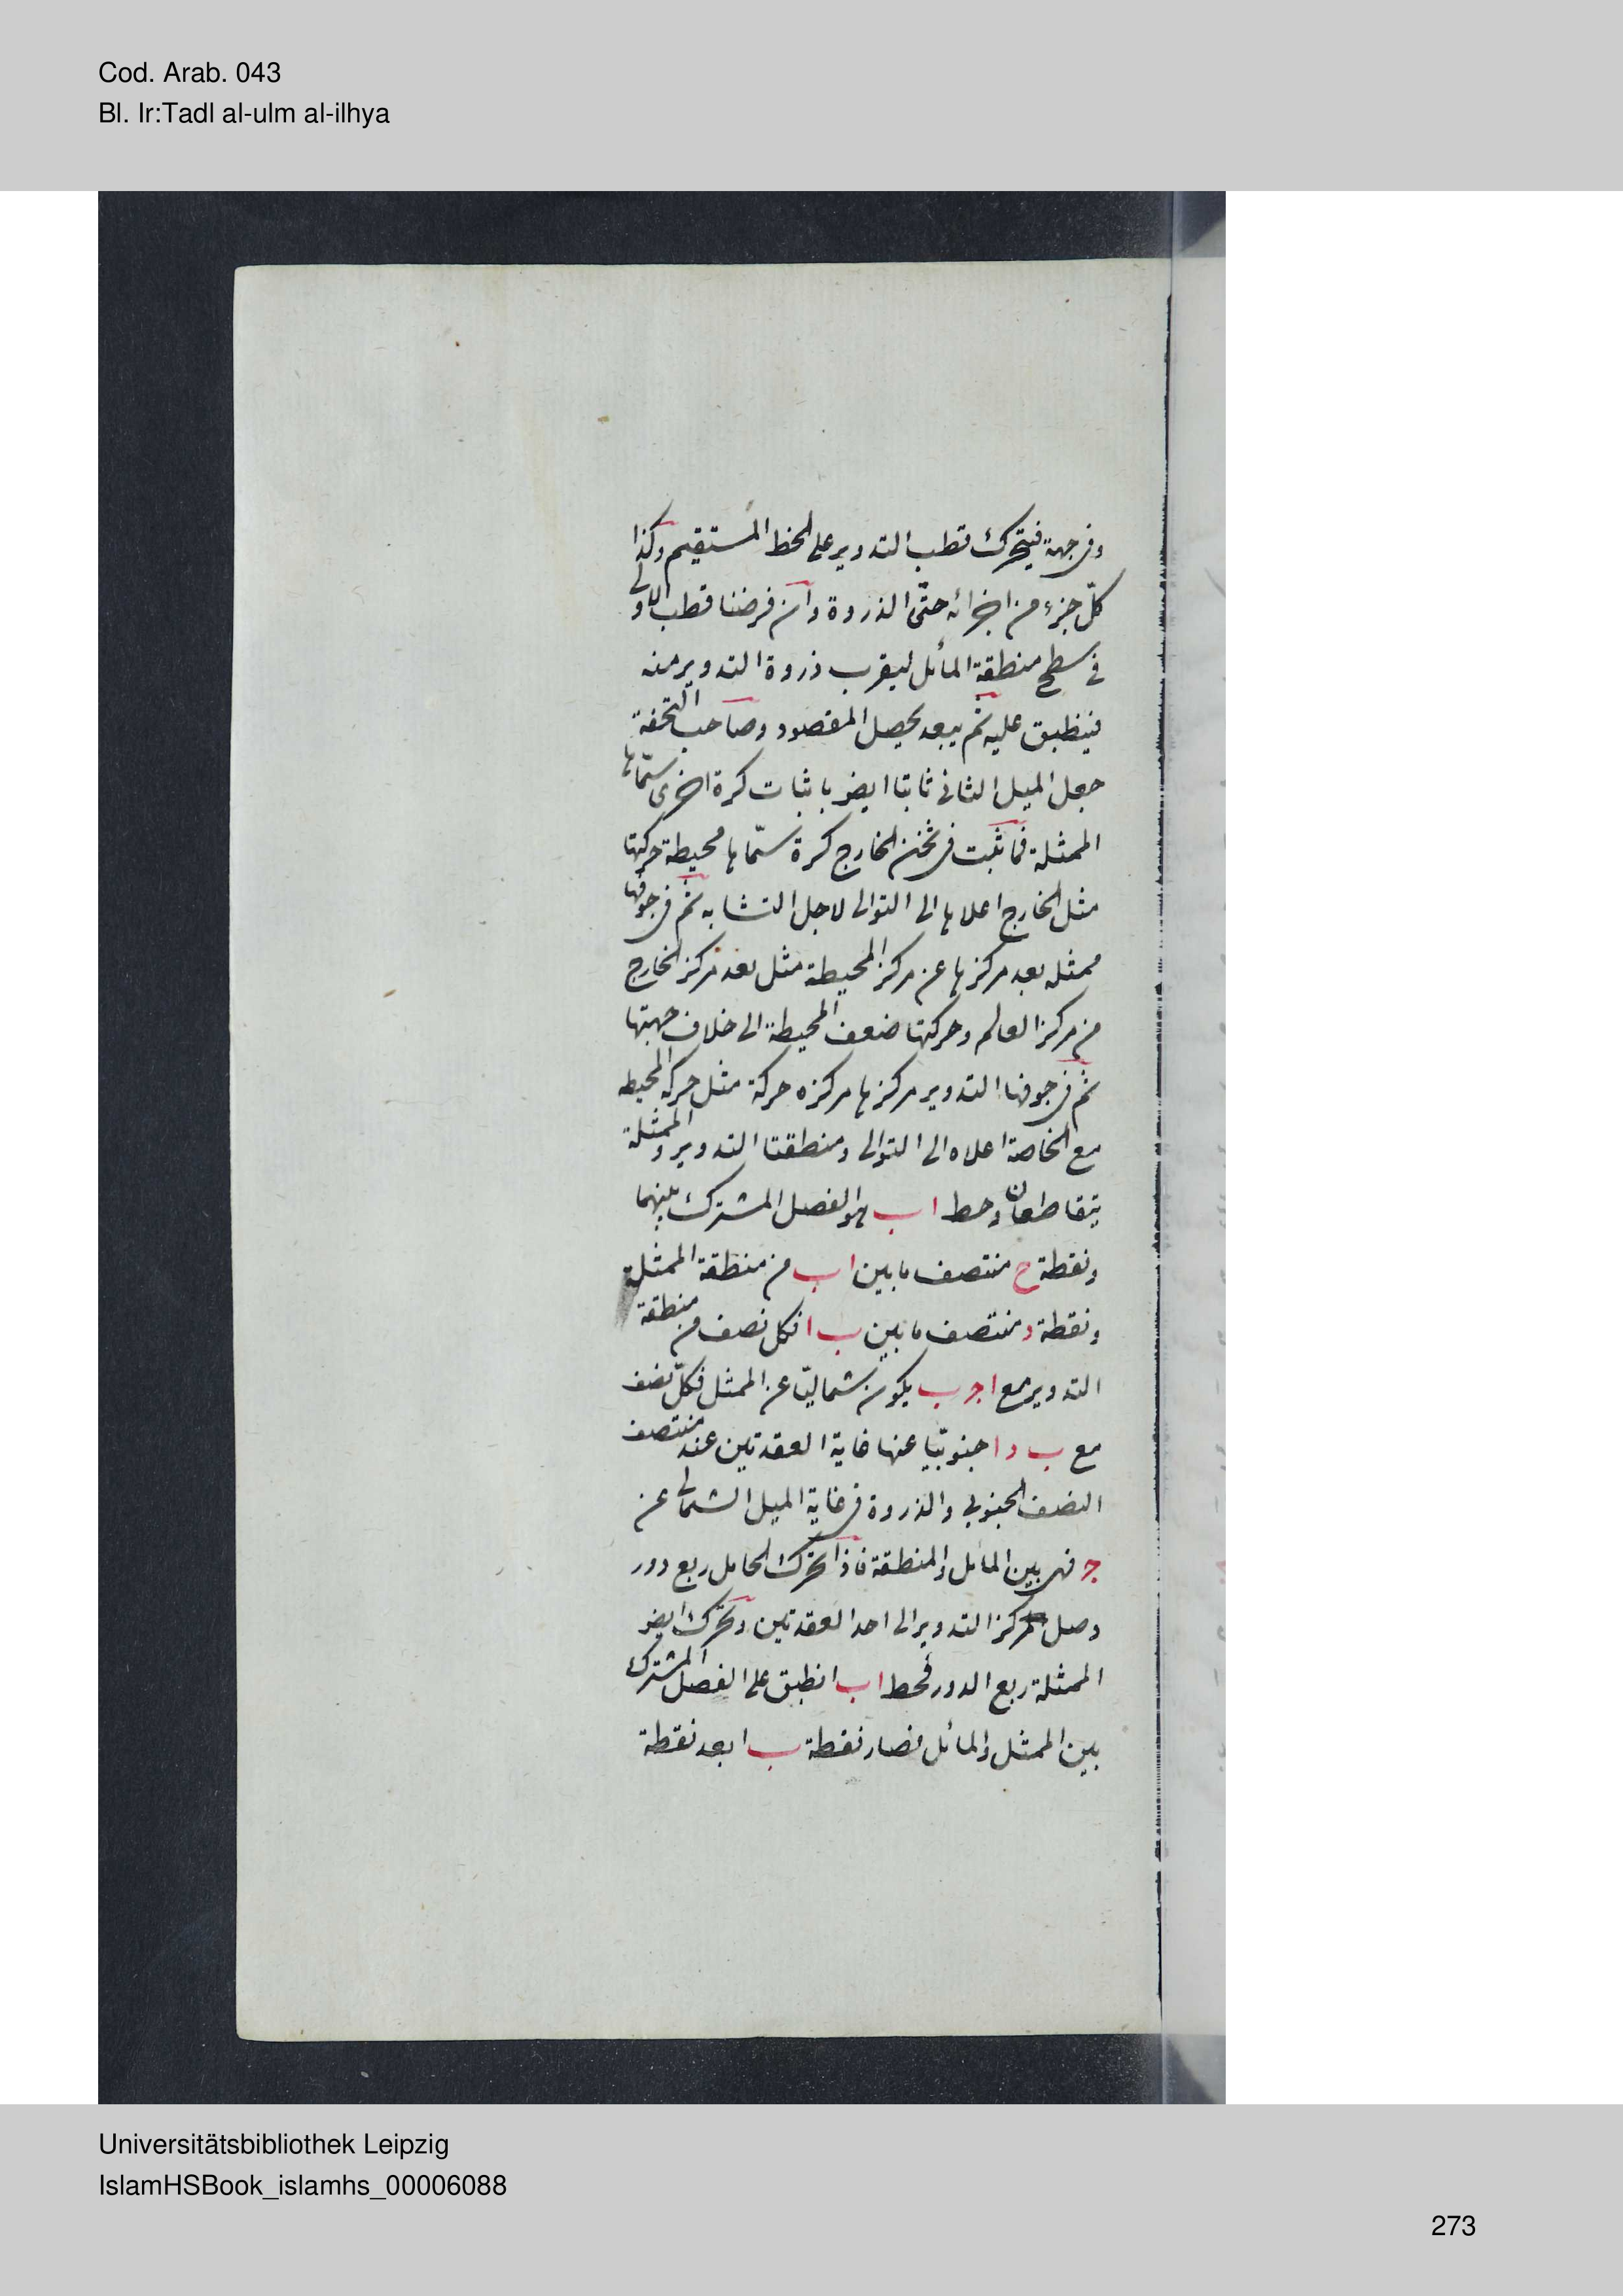 Cod. Arab. 043
Bl. Ir:Tadl al-ulm al-ilhya
وفى جهة فيتحرك قطب التدوير على الخط المستقيم وكذا
كلّ جزء من اجزائه حتّى الذروة وان فرضنا قطب الاولى
فى سطح منطقة المائل ليقرب ذروة التدوير منه
فينطبق عليه ثم يبعد يحصل المقصود وصاحب التحفة
جعل الميل الثانى ثابتا ايضر باثبات كرة اخرى سمّاها
الممثلة فاثبت فى ثخن الخارج كرة سمّاها محيطة حركتها
مثل الخارج اعلاها الى التوالى لاجل التشابه ثم فى جوفها
ممثله بعد مركزها عن مركز المحيطة مثل بعد مركز الخارج
من مركز العالم وحركتها ضعف المحيطة الى خلاف جهتها
ثم فى جوفها التدوير مركزها مركزه حركة مثل حركة المحيطه
مع الخاصة اعلاه الى التوالى ومنطقتا التدوير والممثلة
يتقاطعان وخط ا ب هو الفصل المشترك بينهما
ونقطة ح منتصف ما بين ا ب من منطقة الممثلة
ونقطة د منتصف ما بين ب ا فكل نصف من منطقة
التدوير مع ا ج ب يكون شماليّا عن الممثل فكلّ نصف
مع ب د ا جنوبيّا عنها غاية العقدتين عند منتصف
النصف الجنوبى والذروة فى غاية الميل الشمالى عن
ج فهى بين المائل والمنطقة فاذا تحرك الحامل ربع دور
وصل مركز التدوير الى احد العقدتين وتحرك ايضر
الممثلة ربع الدور فخط ا ب انطبق على الفصل المشترك
بين الممثل والمائل فصار نقطة ب ابعد نقطة
Universitätsbibliothek Leipzig
IslamHSBook_islamhs_00006088
273